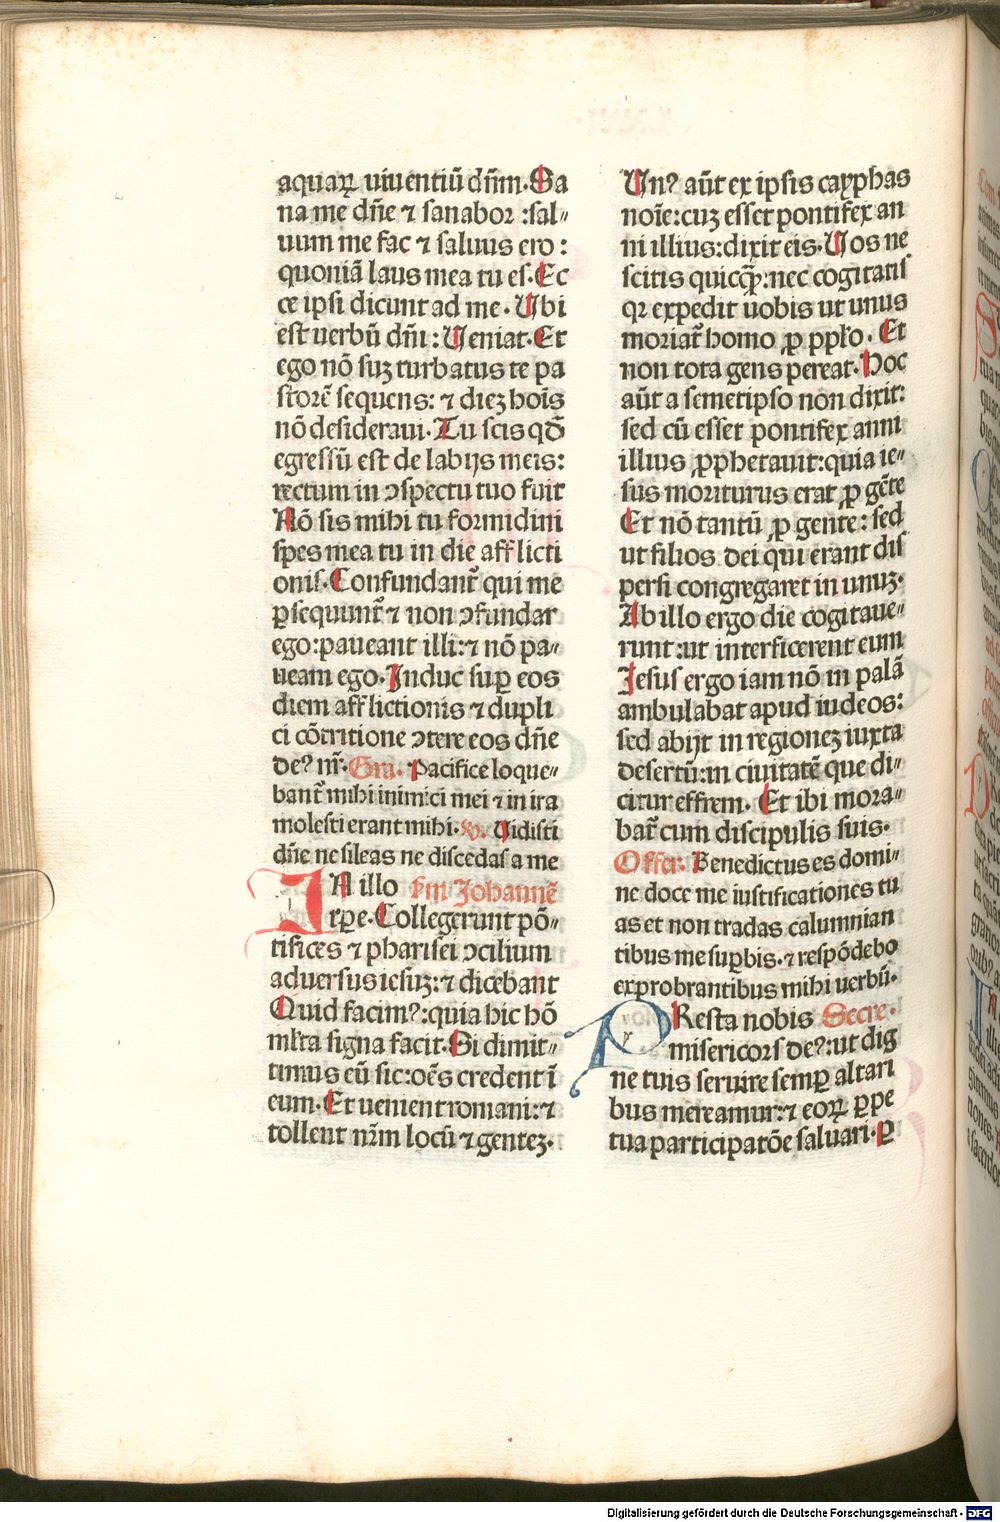 aquaꝝ viuentiū dn̄m. Sa
na me dn̄e ⁊ sanabor :sal⸗
uum me fac ⁊ saluus ero :
quoniā laus mea tu es. Ec
ce ipsi dicunt ad me. Vbi
est verbū dn̄i : Veniat. Et
ego nō suꝫ turbatus te pa
storē sequens: ⁊ dieꝫ hoīs
nō desideraui. Tu scis qd̄
egressū est de labijs meis:
rectum in ꝯspectu tuo fuit
Nō sis mihi tu formidini
spes mea tu in die afflicti
onis. Confundant̄ qui me
ꝑsequunt̄ ⁊ non ꝯfundar
ego: paueant illi: ⁊ nō pa⸗
ueam ego. Induc suꝑ eos
diem afflictionis ⁊ dupli
ci cōtritione ꝯtere eos dn̄e
de? nr̄. Gra. Pacifice loque⸗
bant̄ mihi inimici mei ⁊ in ira
molesti erant mihi. ℣. Vidisti
dn̄e ne sileas ne discedas a me
IN illo sm Johannē
trꝑe. Collegerunt pō⸗
tifices ⁊ pharisei ꝯcilium
aduersus iesuꝫ: ⁊ dicebant
Quid facim?: quia hic hō
ml̄ta signa facit. Si dimit⸗
timus eū sic: oēs credent ī
eum. Et venient romani: ⁊
tollent nr̄m locū ⁊ genteꝫ.
Vn? aūt ex ipsis cayphas
noīe: cuꝫ esset pontifex an
ni illius: dixit eis. Vos ne
scitis quicqꝫ: nec cogitatis
qꝛ expedit vobis vt vnus
moriat̄ homo ꝓ pplo. Et
non tota gens pereat. Hoc
aūt a semetipso non dixit:
sed cū esset pontifex anni
illius ꝓphetauit: quia ie⸗
sus moriturus erat ꝓ gēte
Et nō tantū ꝓ gente: sed
ut filios dei qui erant dis
persi congregaret in vnuꝫ.
Ab illo ergo die cogitaue⸗
runt: ut interficerent eum
Jesus ergo iam nō in palā
ambulabat apud iudeos:
sed abijt in regioneꝫ iuxta
desertū: in ciuitatē que di⸗
citur effrem. Et ibi mora⸗
bat̄ cum discipulis suis.
Offer. Benedictus es domi⸗
ne doce me iustificationes tu
as et non tradas calumnian
tibus me suꝑbis. ⁊ respōdebo
exprobrantibus mihi verbū.
PResta nobis Secre.
misericors de?: ut dig
ne tuis seruire semꝑ altari
bus mereamur: ⁊ eoꝝ ꝑpe
tua participatōe saluari. ꝑ
Digitalisierung gefördert durch die Deutsche Forschungsgemeinschaft - DFG